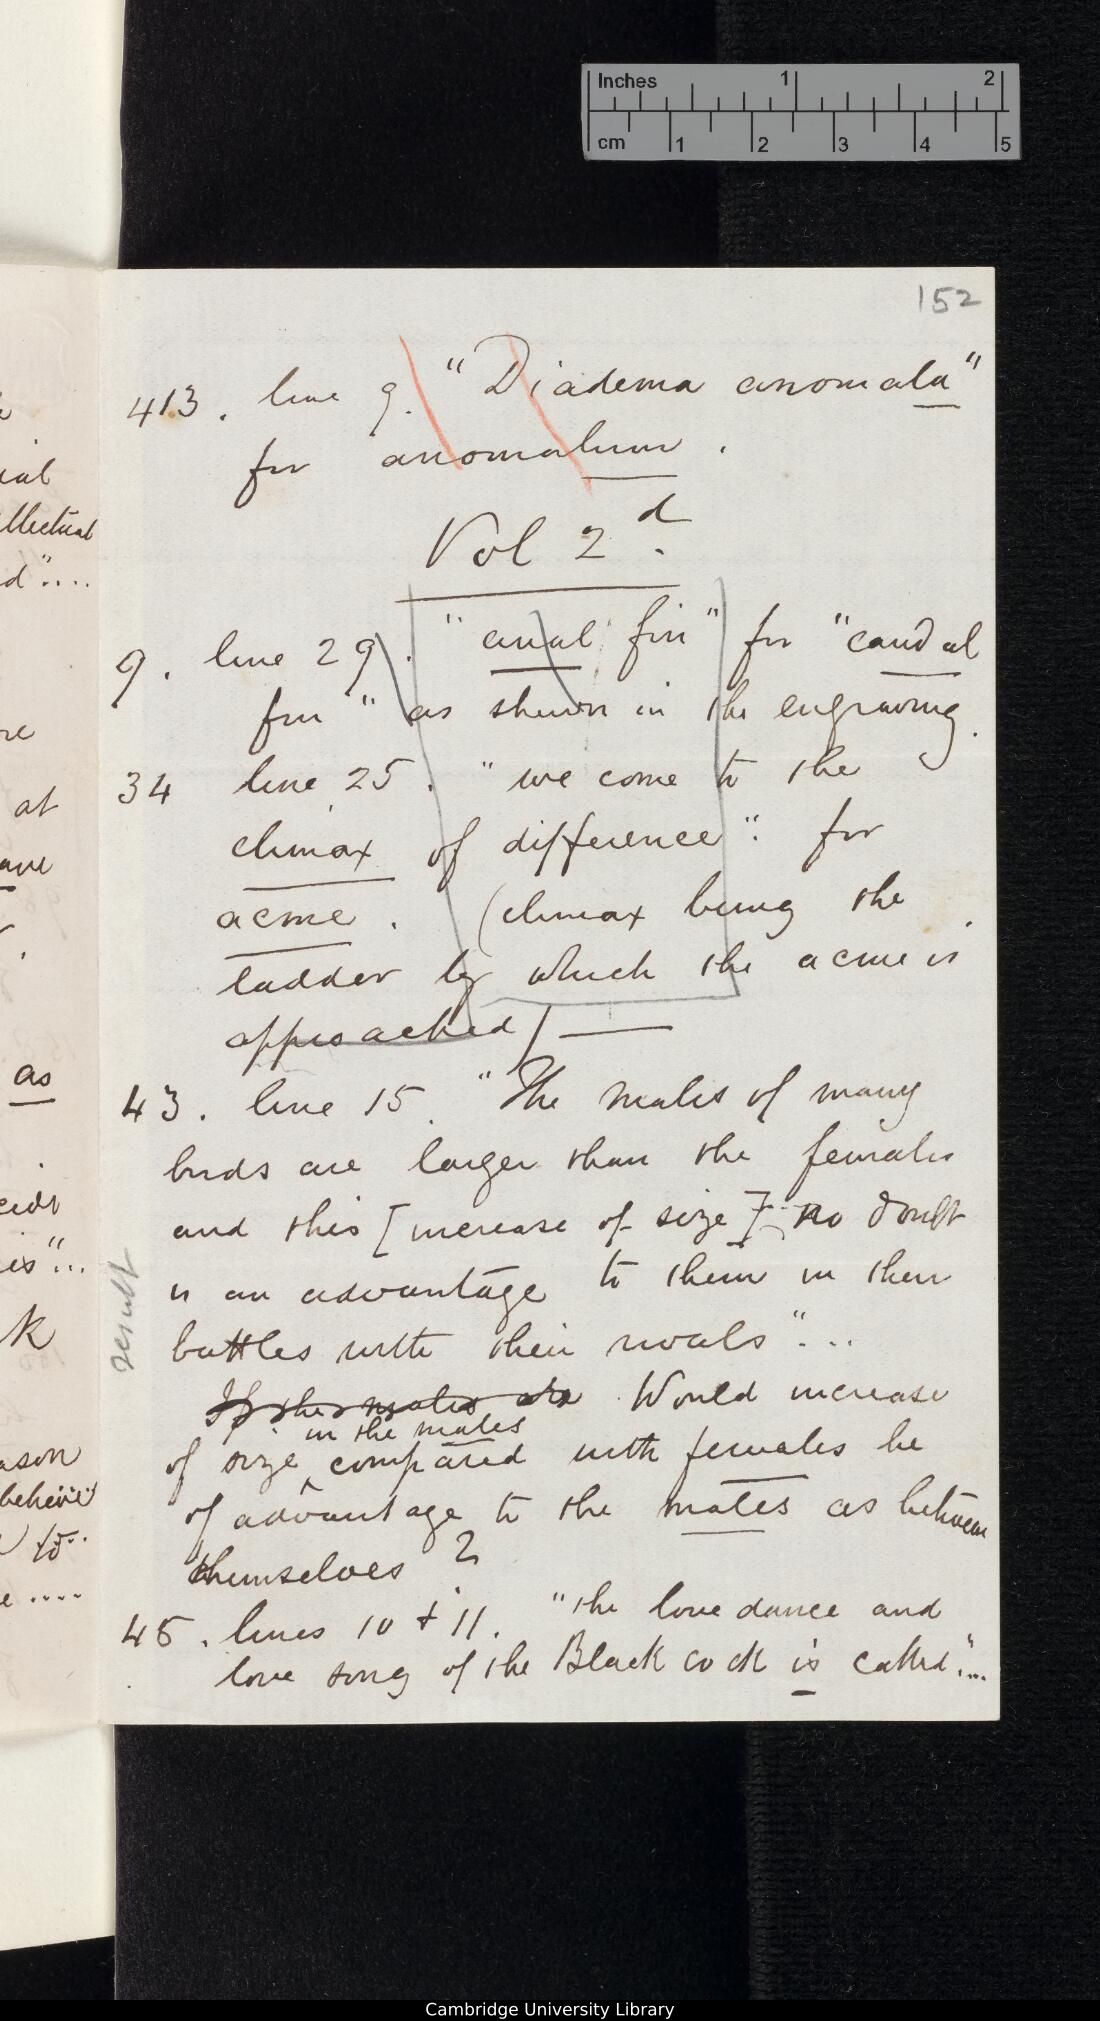 Inches 1 2
cm 1 2 3 4 5
152
413. line 9. "Diadema anomala"
for anomalum.
Vol 2d.
9. line 29. "anal fin" for "caudal
fin" as shewn in the engraving.
34 line 25. "we come to the
climax of difference": for
acme. (climax being the
ladder by which the acme is
approached) —
43. line 15. "The males of many
birds are larger than the females
and this [increase of size] no doubt
is an advantage to them in their
battles with their rivals"...
result
If the males are Would increase
in the males
of size compared with females be
of advantage to the males as between
themselves?
45. lines 10 + 11. "the love dance and
love song of the Black cock is called"...
ial
llectual
d"....
re
at
as
is"...
k
ason
to..
e ....
Cambridge University Library